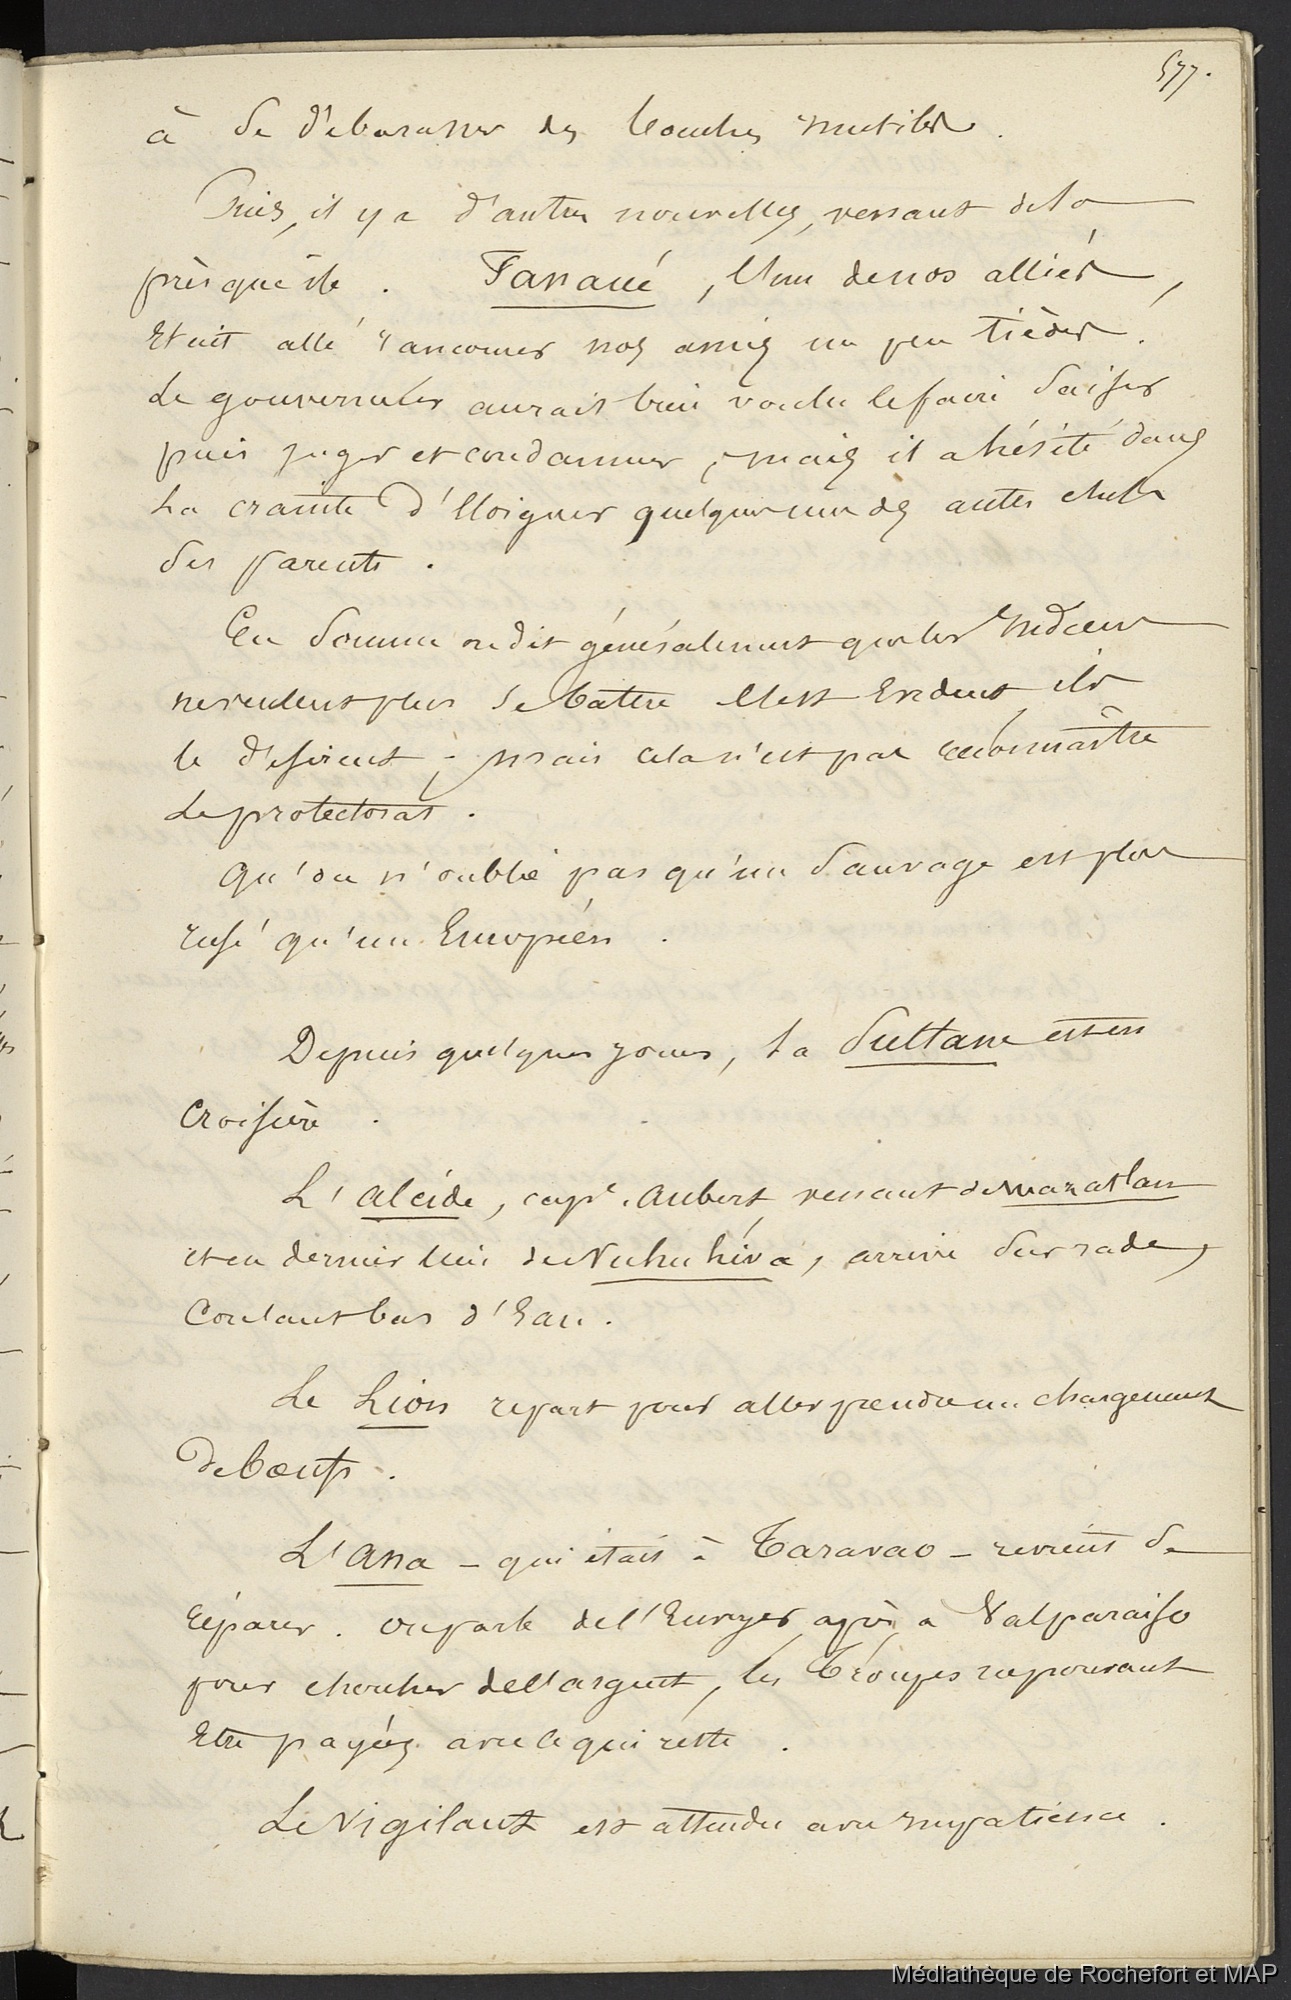 577.
à se débarasser des bouches inutiles.
Puis, il y a d'autres nouvelles, venant de la
près qu'île. Fanaué, l'un de nos alliés,
était allé rançonner nos amis un peu tièdes.
Le gouverneur aurait bien voulu le faire saisir
puis juger et condamner, mais il a hésité dans
la crainte d'éloigner quelques uns des autres chefs
ses parents.
En somme on dit généralement que les Indiens
ne veulent plus se battre. Il est évident ils
le désirent ; mais cela n'est pas reconnaître
le protectorat.
Qu'on n'oublie pas qu'un sauvage est plus
rusé qu'un Européen.
Depuis quelques jours, la Sultane est en
Croisière.
L'Alcide, cape. Aubert, venant de Mazatlan
et en dernier lieu de Nuhuhiva, arrive sur rade,
Coulant bas d'Eau.
Le Lion repart pour aller prendre un chargement
de boeufs.
L'Ana - qui était à Taravao - revient se
réparer. On parle de l'Envoyer après, à Valparaiso
pour chercher de l'argent, les troupes ne pouvant
Etre payées avec ce qui reste.
Le Vigilant est attendu avec impatience.
Médiathèque de Rochefort et MAP